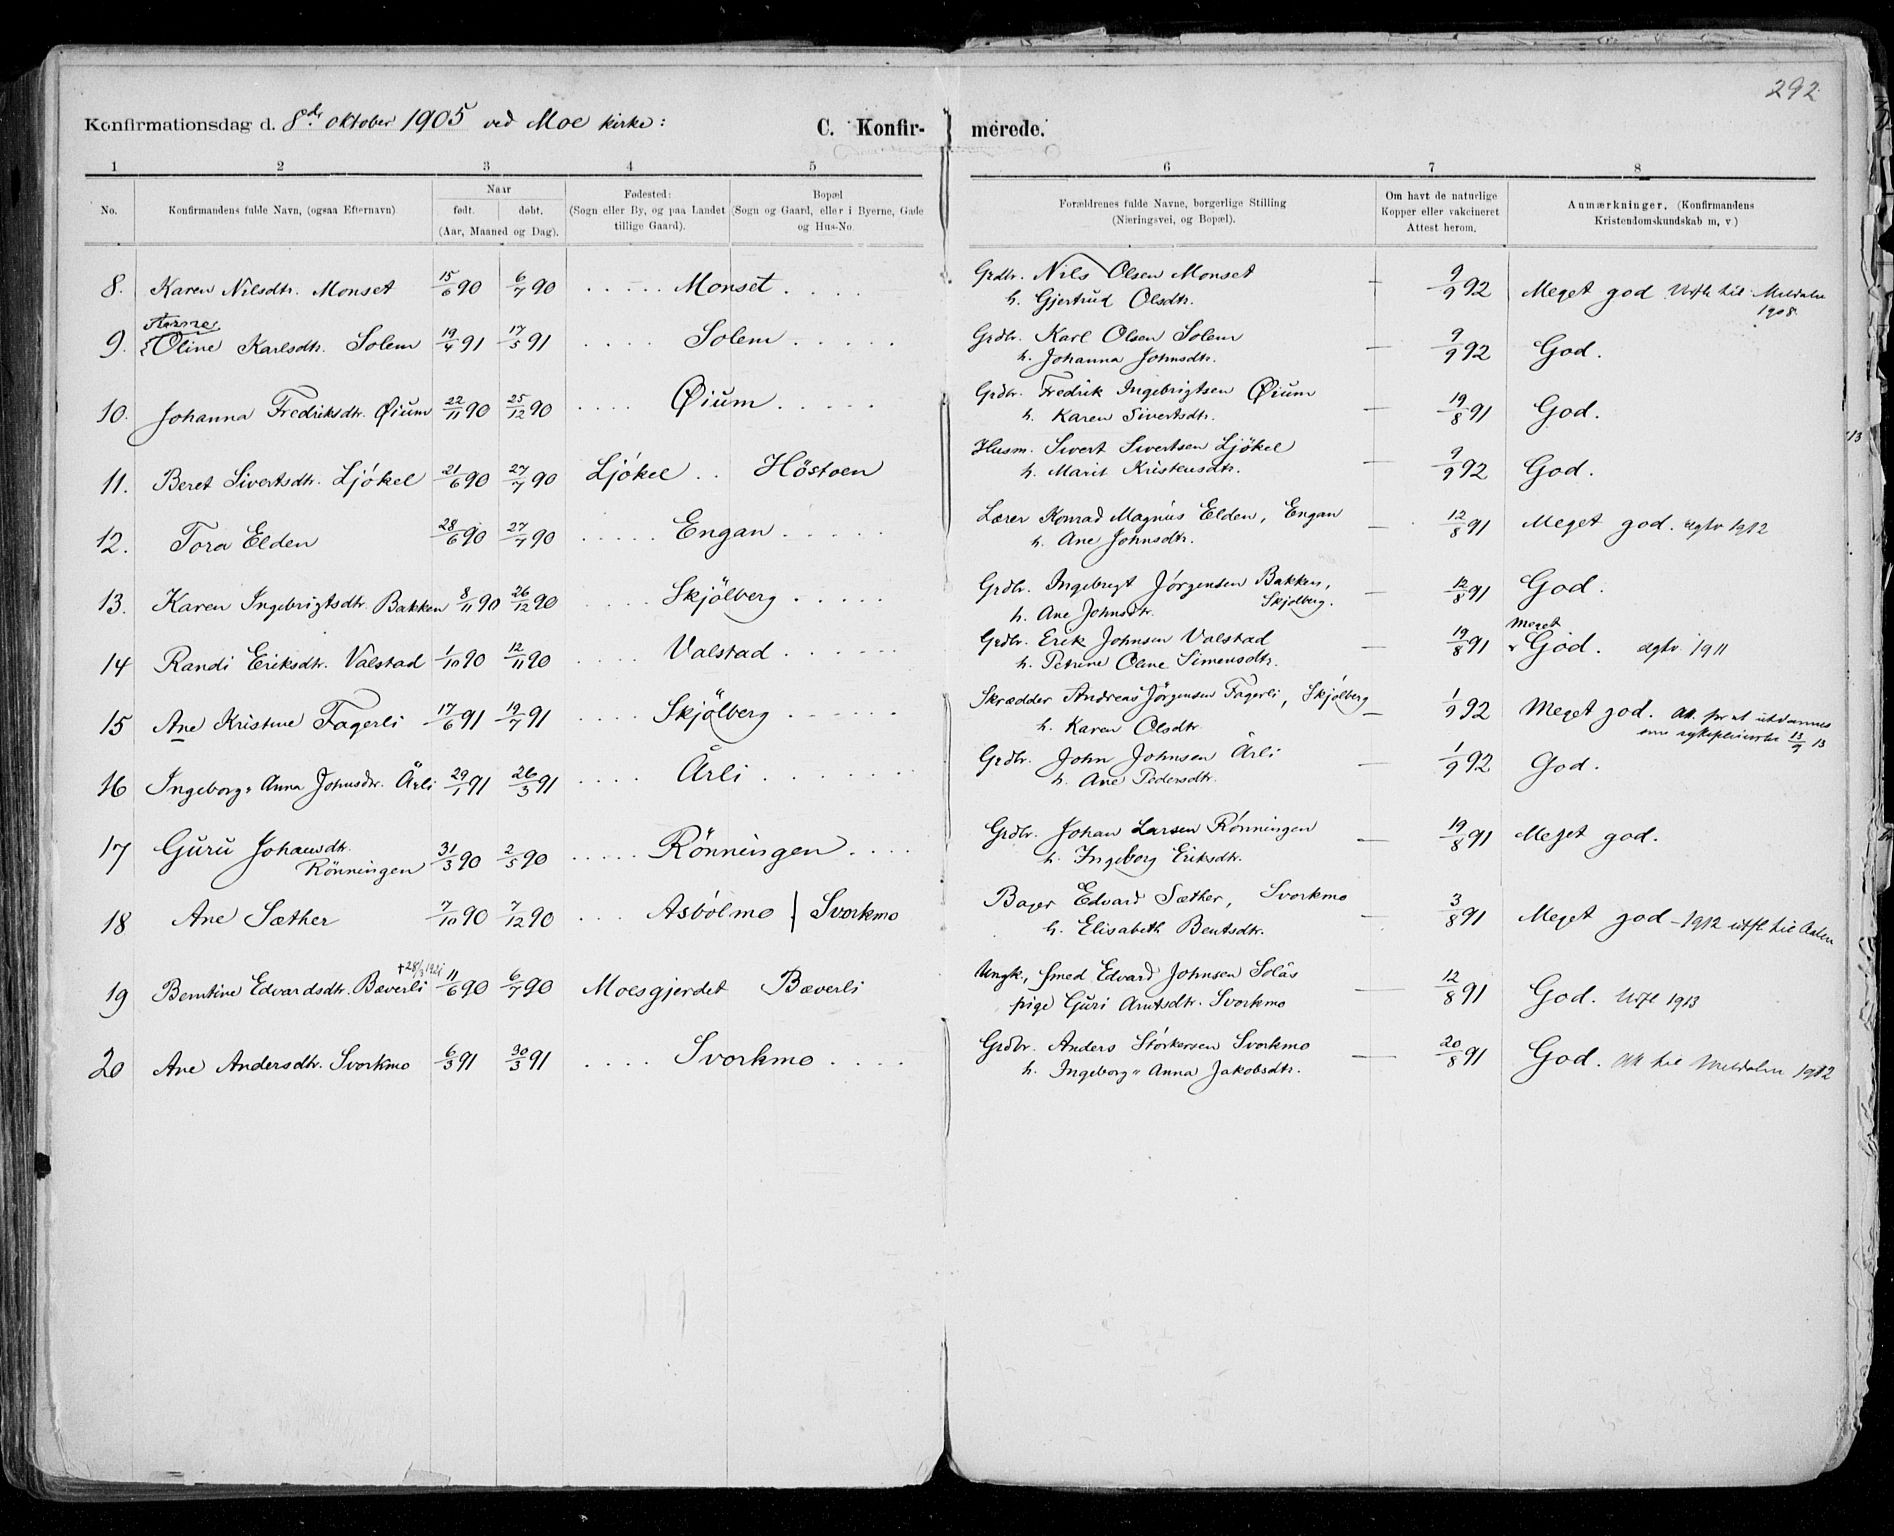 292
Konfirmationsdag d. 8de oktober 1905 ved Moe kirke: C. Konfir- merede.
1 2 3 4 5 6 7 8
No. Konfirmandens fulde Navn, (ogsaa Efternavn) Naar født. døbt. (Aar, Maaned og Dag). Fødested: (Sogn eller By, og paa Landet tillige Gaard). Bopæl (Sogn og Gaard, eller i Byerne, Gade og Hus-No. Forældrenes fulde Navne, borgerlige Stilling (Næringsvei, og Bopæl). Om havt de naturlige Kopper eller vakcineret Attest herom. Anmærkninger, (Konfirmandens Kristendomskundskab m, v)
8. Karen Nilsdtr. Monset 15/6 90 6/7 90 Monset Grdbr. Nils Olsen Monset — 9/9 92 Meget god Utfl. til Meldalen 1908
h. Gjertrud Olsdtr.
9. Oline Karlsdtr. Solem 19/4 91 17/5 91 Solem Grdbr. Karl Olsen Solem — 9/9 92 God.
h. Johanna Johnsdtr.
10. Johanna Fredriksdtr. Øium 22/11 90 25/12 90 Øium Grdbr. Fredrik Ingebrigtsen Øium — 19/8 91 God.
h. Karen Sivertsdtr.
11. Beret Sivertsdtr. Ljökel 21/6 90 27/7 90 Ljökel Höstoen Husm. Sivert Sivertsen Ljökel — 9/9 92 God.
h. Marit Kristensdtr.
12. Tora Elden 28/6 90 27/7 90 Engan Lærer Konrad Magnus Elden, Engan — 12/8 91 Meget god. egtv 1912
h. Ane Johnsdtr.
13. Karen Ingebrigtsdtr. Bakken 8/11 90 26/12 90 Skjölberg Grdbr. Ingebrigt Jørgensen Bakken, Skjølberg. — 12/8 91 God.
h. Ane Johnsdtr.
14 Randi Eriksdtr. Valstad 1/10 90 12/11 90 Valstad Grdbr. Erik Johnsen Valstad — 19/8 91 Meget God. egtv 1911
h. Petrine Oline Simensdtr.
15 Ane Kristine Fagerli 17/6 91 19/7 91 Skjölberg Skrædder Andreas Jørgensen Fagerli, Skjölberg — 1/9 92 Meget god. Att. for at utdannes som sykepleierske 13/9 13
h. Karen Olsdtr.
16 Ingeborg Anna Johnsdtr. Årli 29/1 91 26/3 91 Årli Grdbr. John Johnsen Årli — 1/9 92 God.
h. Ane Pedersdtr.
17 Guru Johansdtr. Rönningen 31/3 90 2/5 90 Rönningen Grdbr. Johan Larsen Rönningen — 19/8 91 Meget god.
h. Ingeborg Eriksdtr.
18 Ane Sæther 7/10 90 7/12 90 Asbölmo Svorkmo Bager Edvard Sæther, Svorkmo 3/8 91 Meget god – 1912 utfl. til Aalen
h. Elisabeth Bentsdtr.
19 Berntine Edvardsdtr. Bæverli 11/6 90 6/7 90 Moesgjerdet Bæverli Ungk, smed Edvard Johnsen Solås — 12/8 91 God. Utfl 1913
pige Guri Arntsdtr. Svorkmo
20 Ane Andersdtr. Svorkmo 6/3 91 30/3 91 Svorkmo Grdbr. Anders Størkersen Svorkmo — 20/8 91 God. Att til Meldalen 1912
h. Ingeborg Anna Jakobsdtr.